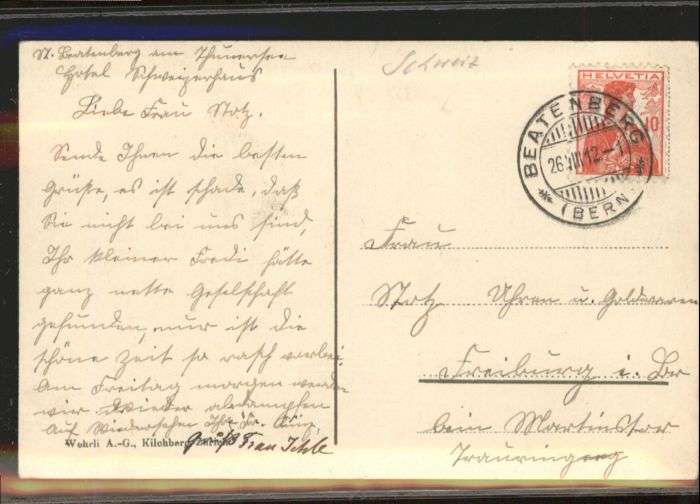 St. Beatenberg am Thunersee
Hotel Schweizerhaus
Liebe Frau Stotz.
Sende Ihnen die besten
Grüße, es ist schade, daß
Sie nicht bei uns sind,
Ihr kleiner Fredi hätte
ganz nette Gesellschaft
gefunden, nur ist die
schöne Zeit so rasch vorbei.
Am Freitag morgen werden
wir wieder abdampfen
Auf Wiedersehen Ihr Fr.
Wehrli A.-G., Kilchberg-Zürich
Frau
Schweiz
HELVETIA
10
BEATENBERG
26.VIII.12.-1
(BERN)
Frau
Stotz Uhren u. Goldwaren
Freiburg i. Br
beim Martinstor